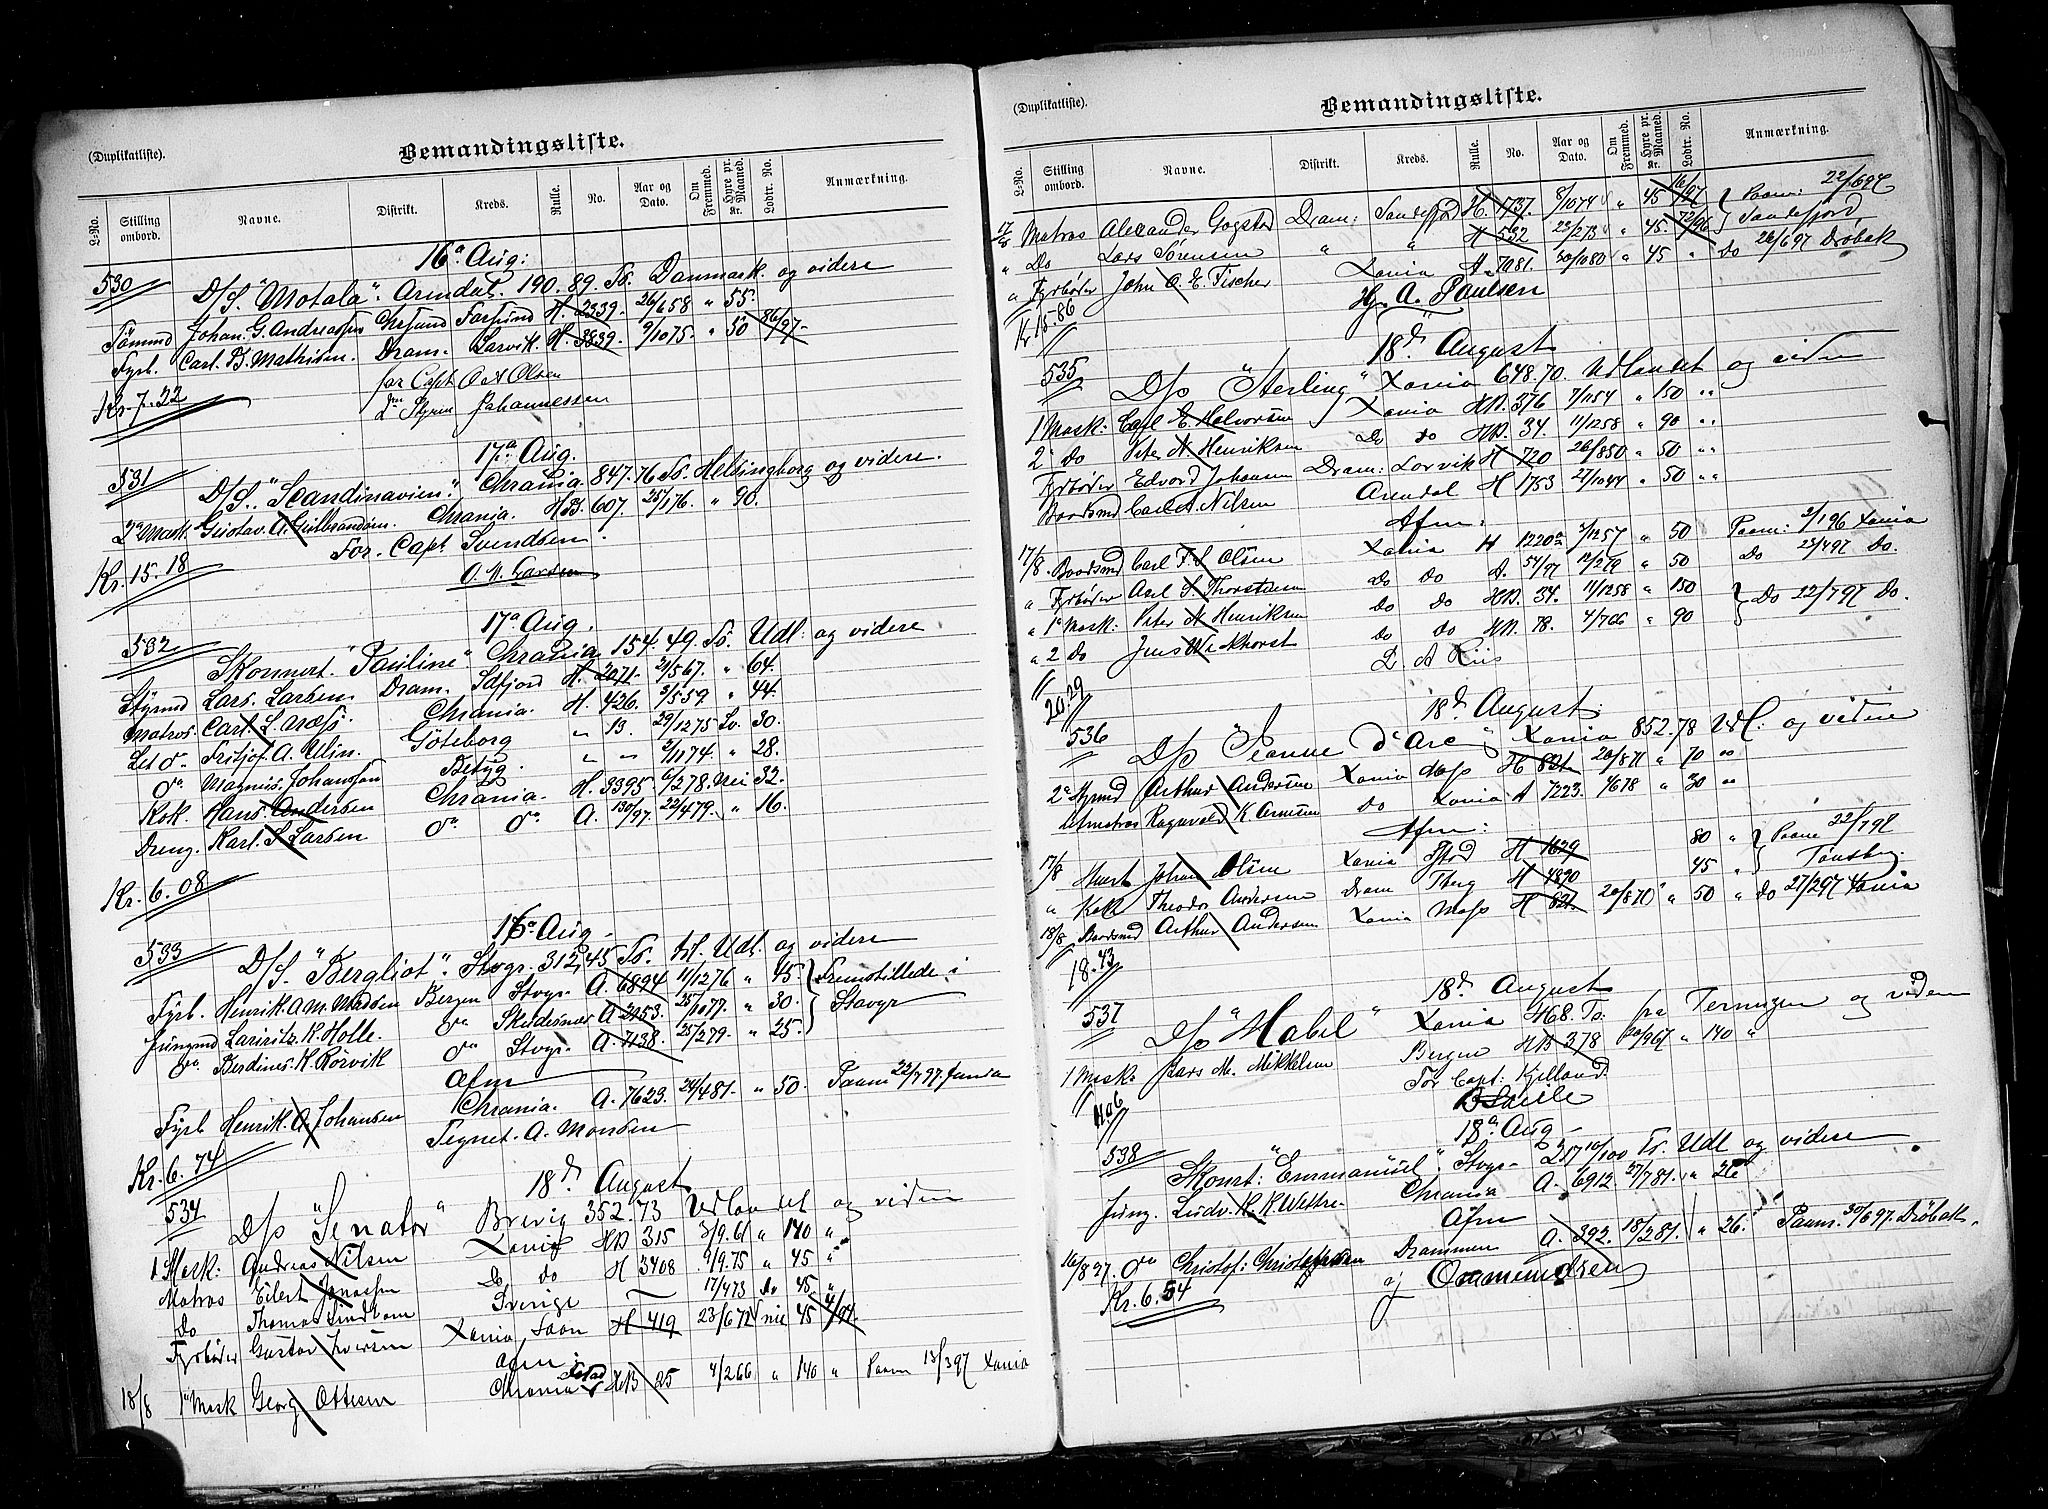 (Duplikatliste).
Bemandingsliste.
L-No. Stilling ombord. Navne. Distrikt. Kreds. Rulle. No. Aar og Dato. Om Fremmed. Hyre pr. Maaned. Kr. Lodtr. No. Anmærkning.
16de Aug:
530 D/S. "Motala". Arendal. 190.89. To. Danmark. og videre
Tømmd Johan. G. Andreassen Chrsund Farsund H. 2339. 26/6 58 " 55.
Fyrb. Carl. B. Mathisen. Dram. Larvik. H. 3839. 9/10 75. " 50 86/97.
Kr. 7.22 for Capt O A Olsen
2den Styrm Johannessen
17de Aug.
531 D/S. "Scandinavien". Chrania. 847.76 To. Helsingborg og videre.
2de Mask. Gustav. A. Gulbrandsen. Chrania. HB. 607. 25/1 76. " 90.
For. Capt Svendsen.
Kr. 15.18 O. M. Larsen
17de Aug.
532 Skonnert. "Pauline" Chrania 154.49. To. Udl: og videre
Styrmd Lars. Larsen Dram. Idfjord H. 2071. 21/5 67. " 64.
Matros. Carl. L. Næss. Chrania. H. 426. 3/5 59. " 44.
Let do Fritjof. A. Ulin. Göteborg " 13. 29/12 75 Sv. 30.
do Magnus. Johansson Betyg. " " 2/11 74 " 28.
Kok. Hans. Andersen Chrania. H. 3395. 6/2 78. Nei 32.
Dreng. Karl. S. Larsen do do A. 130/97. 22/4 79. " 16.
Kr. 6.08
16de Aug.
533 D/S. "Bergliot". Stvgr. 312,45 To. til. Udl. og videre
Fyrb. Henrik. A. M. Madsen Bergen Stvgr. A. 6894 11/12 76 " 45. Fremstillede i
Jungmd Lauritz. K. Holle. do Skudesnæs A. 2953. 25/10 77. " 30. Stavgr
do Berdines. K. Rørvik do Stvgr. A. 7138. 25/2 79. " 25.
Afm
Fyrb Henrik. A. Johansen Chrania. A. 7623. 24/4 81. " 50. Paam 22/7 97. Xania
Kr. 6.74 Tegnet. A. Monsen
18d August
534 D/S "Senator" Brevig 352.73 Udlandet og viden
1 Mask: Andreas Nilsen Xania HB 315 3/9. 61 " 140 "
Matros Eilert Jonassen Do do H 3408 9/9. 75 " 45 "
Do Thomas Lindbom Sverige 17/4 73 do 45
Fyrbøder Gustav Iversen Xania Soon H 419 23/6 72 nei 45 4/97.
Afm:
18/8 1ste Mask Georg Ottesen Chrania HB 25 4/2 66 " 140 " Paam 13/3 97 Xania
(Duplikatliste).
Bemandingsliste.
L-No. Stilling ombord. Navne. Distrikt. Kreds. Rulle. No. Aar og Dato. Om Fremmed. Hyre pr. Maaned. Kr. Lodtr. No. Anmærkning.
17/8 Matros Alexander Gogstad Dram: Sandefjord H. 1737. 8/10 74 " 45 16/97 Paam: 22/6 97
" Do Lars Sørensen " " H 532 22/2 73 " 45. 72/96 Sandefjord
" Fyrbøder John A. E. Fischer Xania A. 7081. 20/10 80 " 45 " Do 26/6 97 Drøbak
Kr 15.86 Hj. A. Paulsen
18d August
535 D/S "Sterling" Xania 648.70. Udlandet og viden
1 Mask: Carl E. Halvorsen Xania HB. 376 7/11 54 " 150 "
2de Do Peter A Henriksen Do do HB. 34. 11/12 58 " 90 "
Fyrbøder Edvard Johansen Dram: Larvik H 720 26/8 50 " 50 "
Baadsmd Carl A. Nilsen Arendal H 1753 27/10 44 " 50 "
Afm:
17/8. Baadsmd Carl F. S Olsen Xania H 1220a 2/12 57 " 50 Paam: 2/1 96 Xania
" Fyrbøder Axel S Thorstensen Do do A. 54/97 12/2 79 " 50 Do 23/4 97 Do.
" 1ste Mask: Peter A Henriksen do do HB. 34. 11/12 58 " 150 Do 22/7 97 Do.
" 2 Do Jens Weckhorst do do HB. 78. 4/7 66 " 90
20.29 L. A Riis
18d August.
536 D/S "Jeanne d'Arc" Xania 852.78 Udl. og viden
2de Styrmd Arthur Andersen Xania Moss H 821. 20/8 71 " 70 "
Ltmatros Ragnvald K. Arnesen do Xania A 7223. 1/6 78 " 30 "
Afm:
17/8 Hvert Johan Olsen Xania H 1629 80 " Paam 22/7 97
" Kok Theodor Andersen Dram Tberg H 4890 45 " Tønsberg.
18/8 Baadsmd Arthur Andersen Xania Moss H 821. 20/8 71 " 50 " Do 27/2 97 Xania
18.43
18d August
537 D/S "Mabel" Xania 468. To. fra Terningen og viden
1 Mask. Lars M. Mikkelsen Bergen HB 378 20/9 67 " 140 "
For Capt: Kjelland
11.06
18de Aug.
538 Skonrt: "Emmanuel". Stvgr. 257 10/100 Tr. Udl og videre
Jung. Ludv. H. K. Wettre. Chrania A. 6912 27/7 81. " 26
Afm
16/8 97. do Christof: Christoffersen Drammen A. 392. 18/2 81. " 26. Paam. 30/6 97. Drøbak.
Kr. 6.54